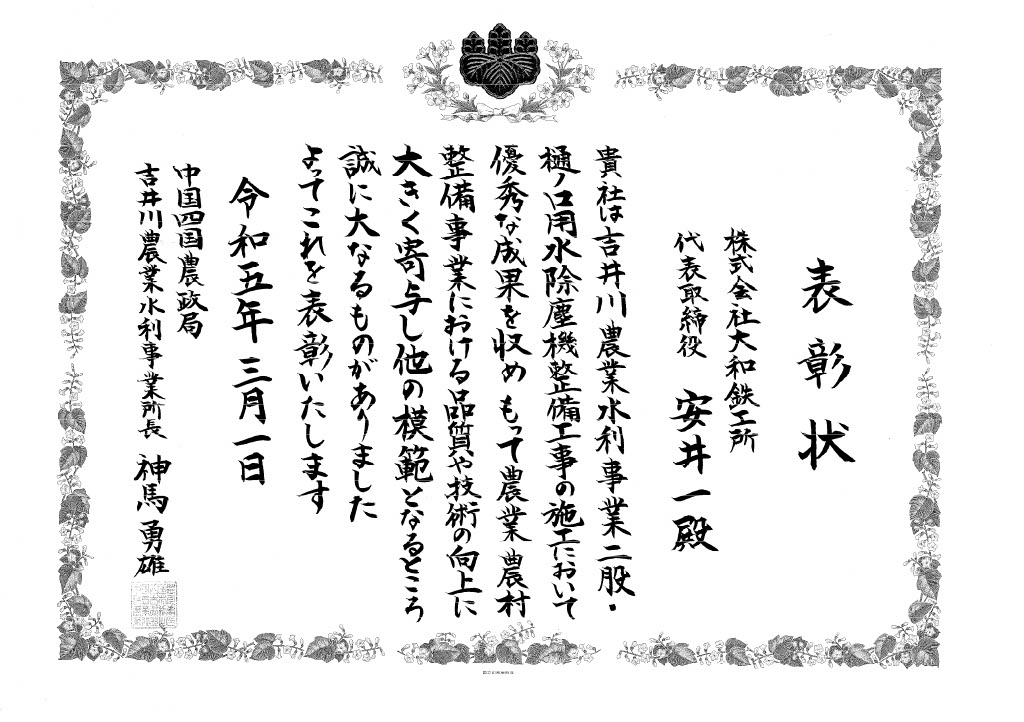 表彰状
株式会社大和鉄工所
代表取締役 安井一殿
貴社は吉井川農業水利事業二股・
樋ノ口用水除塵機整備工事の施工において
優秀な成果を収めもって農業農村
整備事業における品質や技術の向上に
大きく寄与し他の模範となるところ
誠に大なるものがありました
よってこれを表彰いたします
令和五年三月一日
中国四国農政局
吉井川農業水利事業所長 神馬勇雄